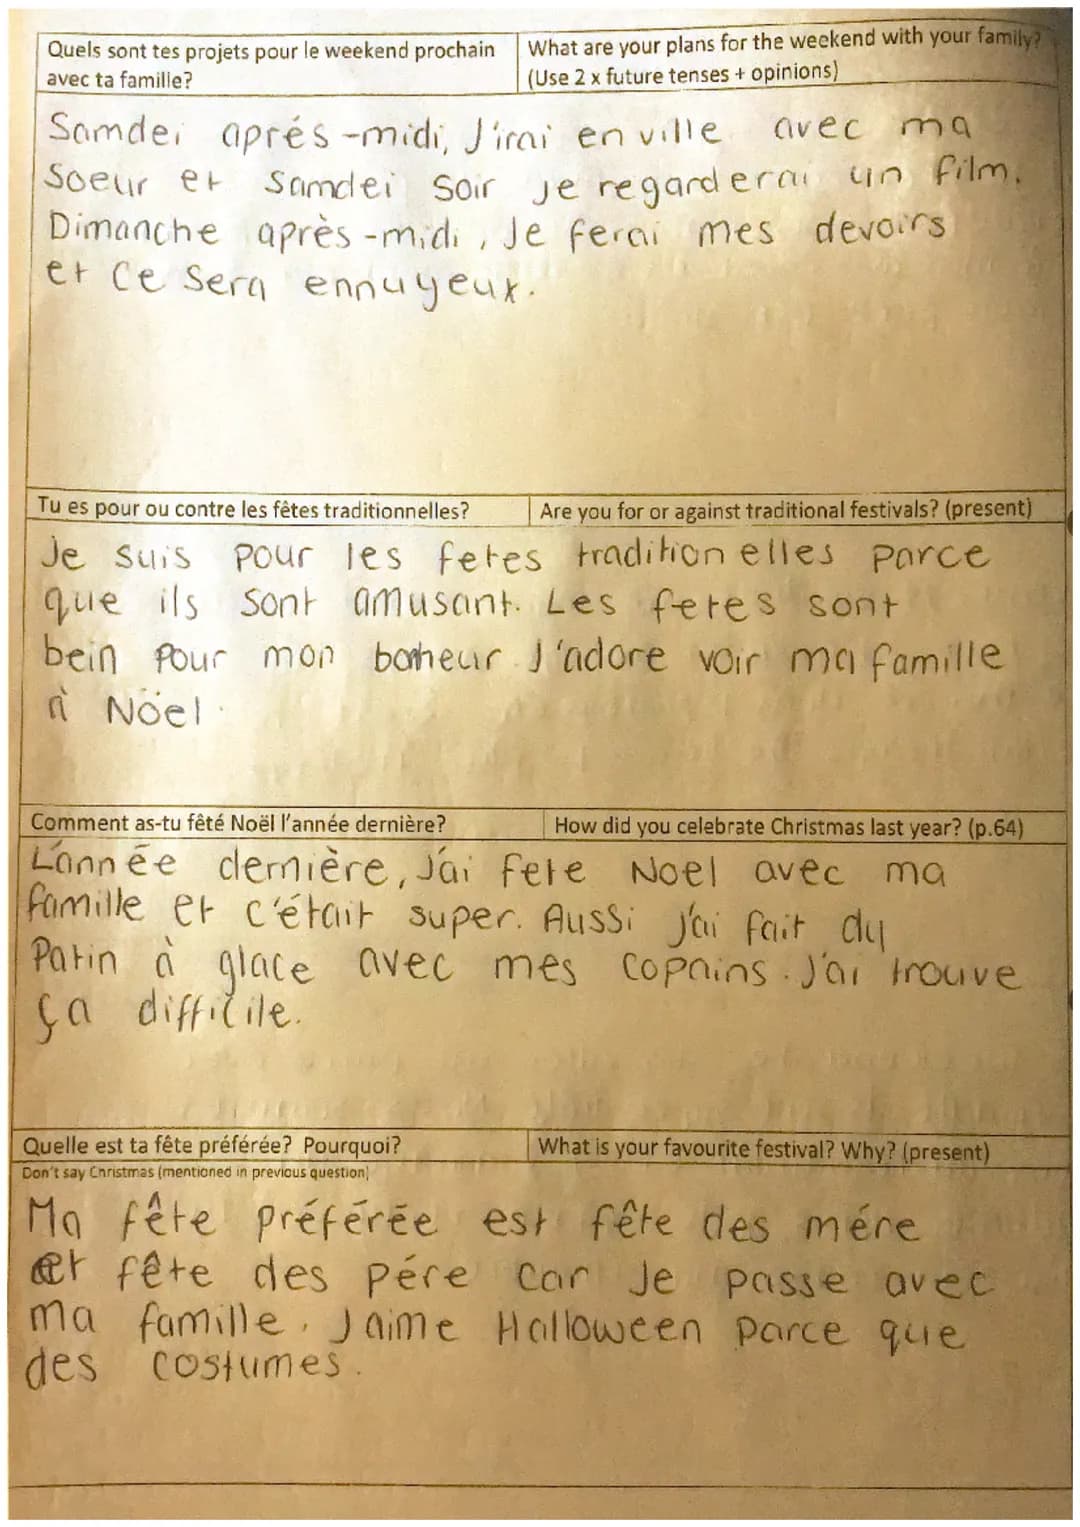 Quels sont tes projets pour le weekend prochain
avec ta famille?
What are your plans for the weekend with your family?
(Use 2 x future tenses + opinions)
Samdei aprés-midi, J'irai en ville avec ma
Soeur et Samdei Soir je regarderai un film.
Dimanche après-midi, Je ferai mes devoirs
et Ce Sera ennuyeux.
Tu es pour ou contre les fêtes traditionnelles?
Are you for or against traditional festivals? (present)
Je suis pour les fetes tradition elles parce
que ils sont amusant. Les fetes sont
bein pour mon bonheur J'adore voir ma famille
à Nöel.
Comment as-tu fêté Noël l'année dernière?
How did you celebrate Christmas last year? (p.64)
L'année dernière, J'ai fete Noel avec ma
famille et c'était super. Aussi j'ai fait du
Patin à glace avec mes copains. J'ai trouve
ça difficile.
Quelle est ta fête préférée? Pourquoi?
What is your favourite festival? Why? (present)
Don't say Christmas (mentioned in previous question)
Ma fête préférée est fête des mére
et fête des pére car Je passe avec
ma famille. J'aime Halloween parce que
des costumes.